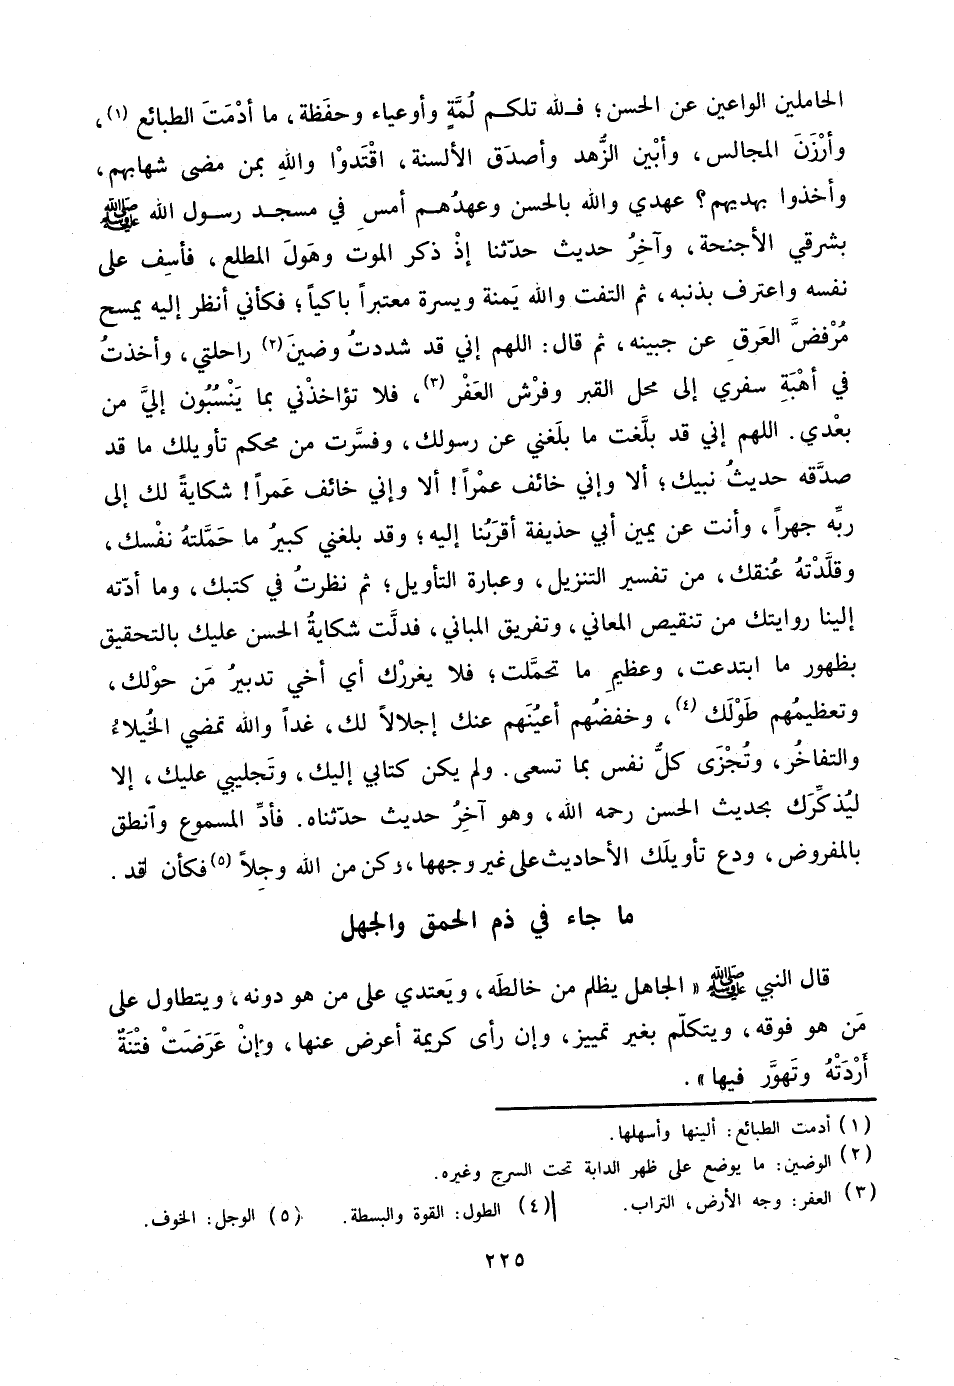 الحاملين الواعين عن الحسن؛ فـلله تلكـم لُمَّةٍ وأوعياء وحفَظة، ما أدْمَتَ الطبائع (١)،
وأرْزَنَ المجالس، وأبْين الزُّهد وأصدَق الألسنة، اقْتَدوْا واللهِ بمن مضى شهابهم،
وأخذوا بهديهم؟ عهدي والله بالحسن وعهدُهـم أمس ِ في مسجـد رسـول الله ﷺ
بشرقي الأجنحة، وآخِرُ حديث حدّثنا إذْ ذكر الموت وهَولَ المطلع، فأسِف على
نفسه واعترف بذنبه، ثم التفت والله يَمنة ويسرة معتبراً باكياً؛ فكأني أنظر إليه يمسح
مُرْفضَّ العَرق ِ عن جبينه، ثم قال: اللهم إني قد شددتُ وضينَ (٢) راحلتي، وأخذتُ
في أهْبَةِ سفري إلى محل القبر وفرْش العَفْر (٣)، فلا تؤاخذْني بما يَنْسُبُون إليَّ من
بعْدي. اللهم إني قد بلَّغت ما بلَغني عن رسولك، وفسَّرت من محكم تأويلك ما قد
صدَّقه حديثُ نبيك؛ ألا وإني خائف عمْراً! ألا وإني خائف عَمراً! شكايةً لك إلى
ربِّه جهراً، وأنت عن يمين أبي حذيفة أقرَبُنا إليه؛ وقد بلغني كبيرُ ما حَمَّلتهُ نفْسك،
وقلَّدْتهُ عُنقك، من تفسير التنزيل، وعبارة التأويل؛ ثم نظرتُ في كتبك، وما أدّته
إلينا روايتك من تنقيص المعاني، وتفريق المباني، فدلَّت شكايةُ الحسن عليك بالتحقيق
بظهور ما ابتدعت، وعظيمِ ما تحمَّلت؛ فلا يغررْك أي أخي تدبيرُ مَن حوْلك،
وتعظيمُهم طَوْلَك (٤)، وخفضُهم أعيُنَهم عنك إجلالاً لك، غداً والله تمضي الخُيلاءُ
والتفاخُر، وتُجْزَى كلُّ نفس بما تسعى. ولم يكن كتابي إليك، وتَجليبي عليك، إلا
ليُذكِّرَك بحديث الحسن رحمه الله، وهو آخِرُ حديث حدّثناه. فأدِّ المسموع وٱنطق
بالمفروض، ودع تأويلَك الأحاديث على غير وجهها، وكن من الله وجِلاً (٥) فكأن لقد.
ما جاء في ذم الحمق والجهل
قال النبي ﷺ « الجاهل يظلم من خالطَه، ويَعتدي على من هو دونه، ويتطاول على
مَن هو فوقه، ويتكلّم بغير تمييز، وإن رأى كريمة أعرض عنها، وإنْ عَرَضَتْ فتْنَةٌ
أَرْدَتْهُ وتَهوَّر فيها ».
(١) أدمت الطبائع: ألينها وأسهلها.
(٢) الوضين: ما يوضع على ظهر الدابة تحت السرج وغيره.
(٣) العفر: وجه الأرض، التراب. (٤) الطول: القوة والبسطة. (٥) الوجل: الخوف.
٢٢٥